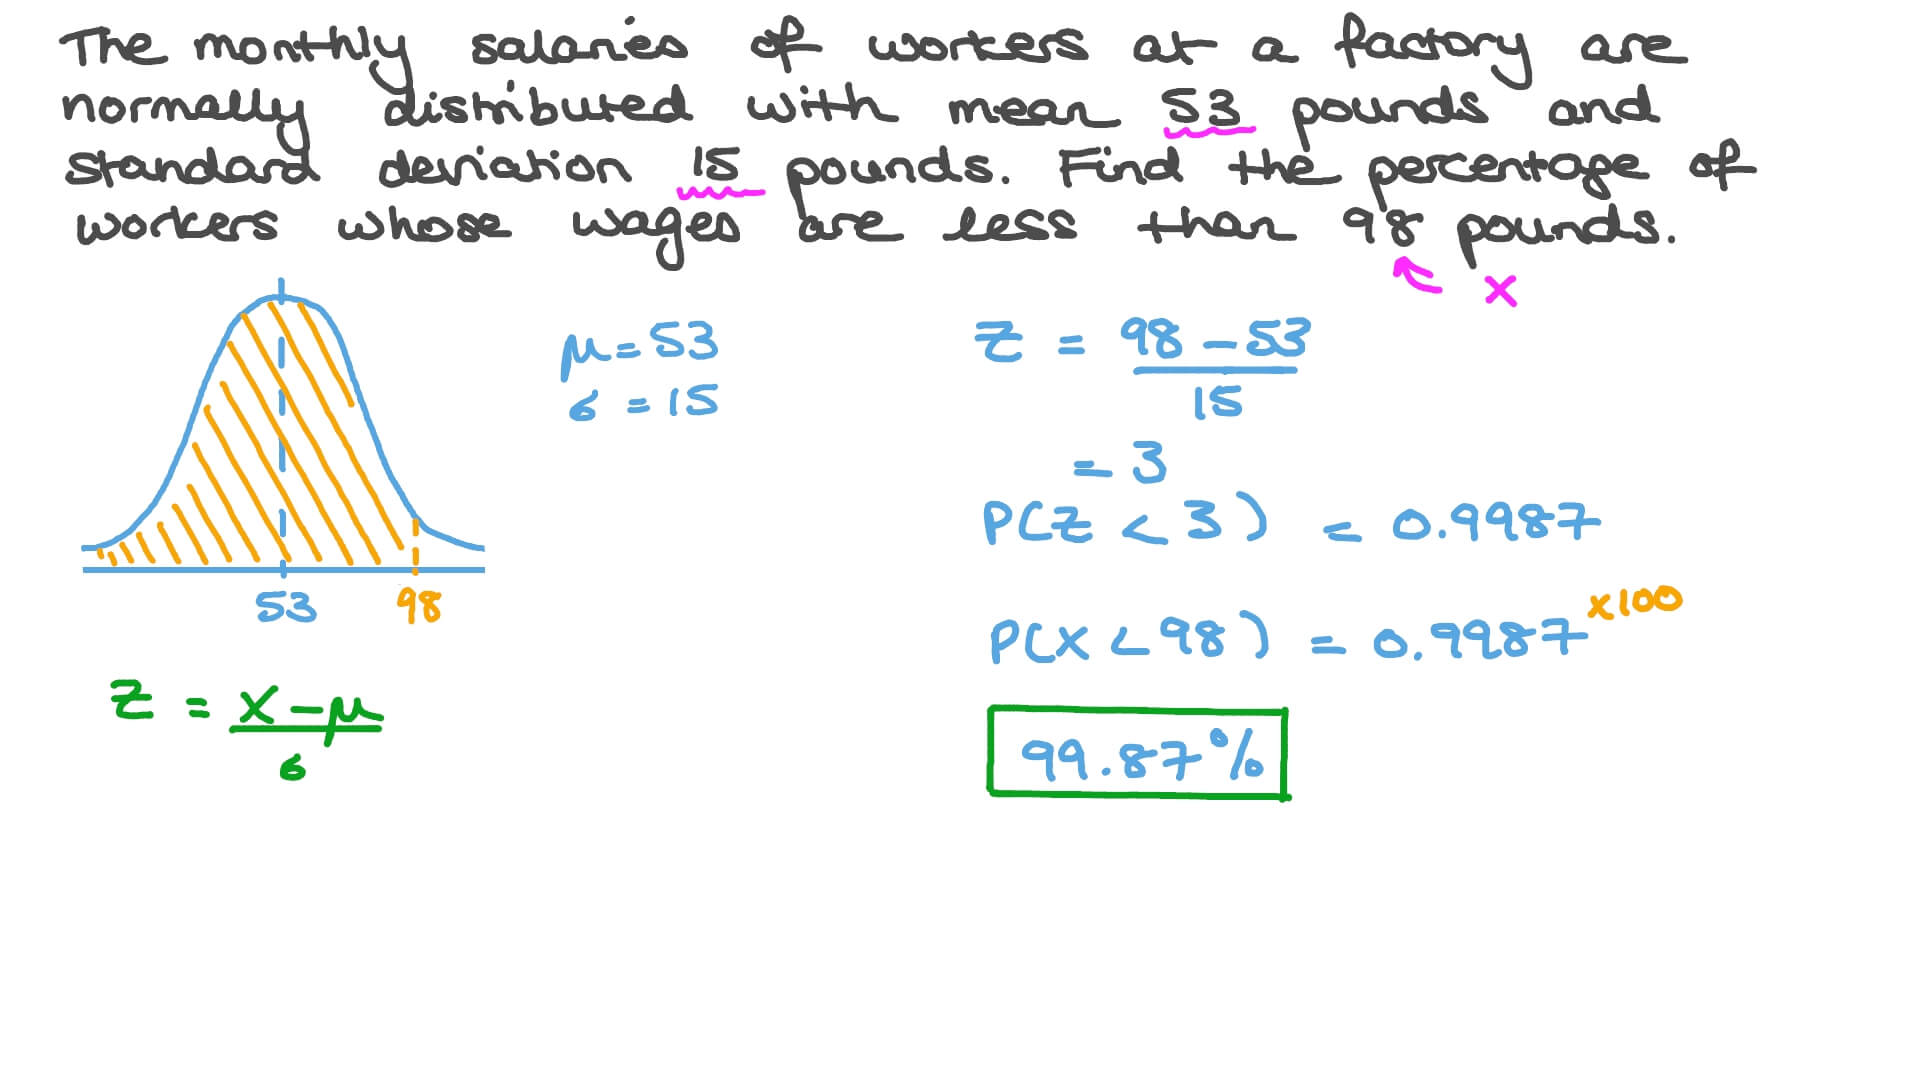 The monthly salaries of workers at a factory are
normally distributed with mean 53 pounds and
standard deviation 15 pounds. Find the percentage of
workers whose wages are less than 98 pounds.
x
μ = 53
σ = 15
53
98
Z = x - μ
σ
Z = 98 - 53
15
= 3
P(Z < 3) = 0.9987
P(X < 98) = 0.9987 ×100
99.87%